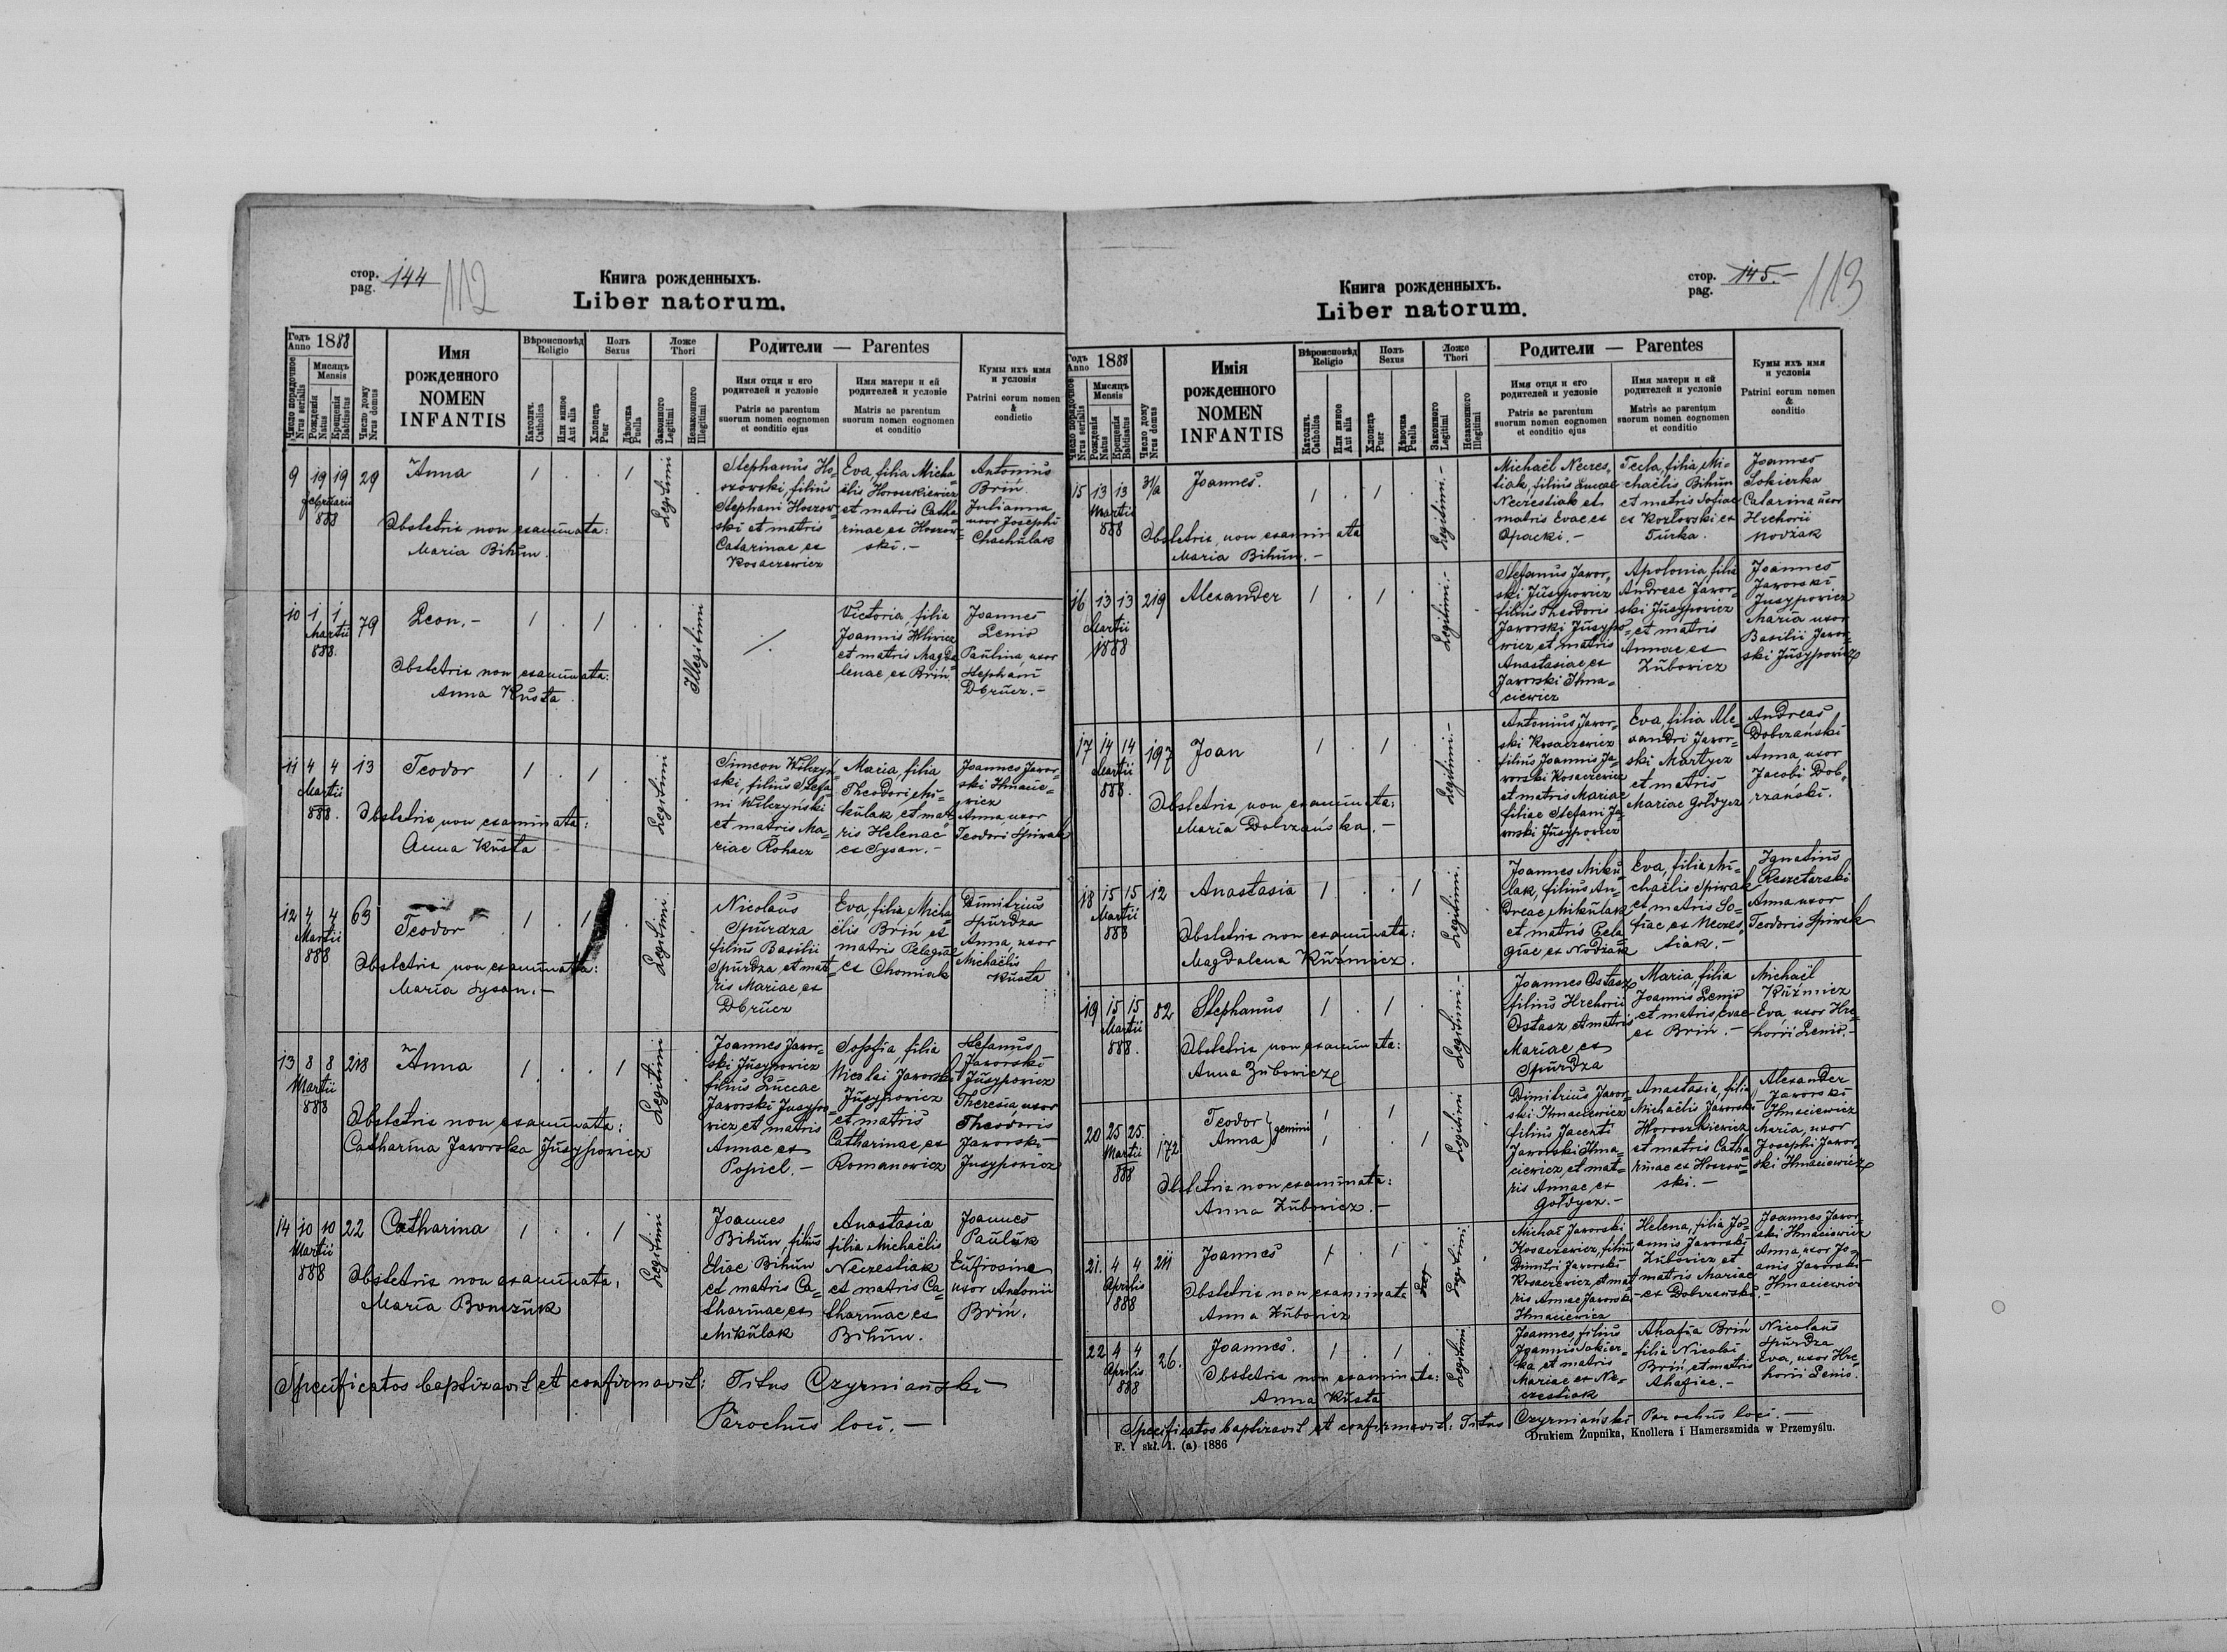 стор.
pag. 144
112
Книга рожденныхъ.
Liber natorum.
Годъ
Anno 1888
Мисяцъ
Mensis
Число порядочное
Nrus serialis
Рожденія
Natus
Крещенія
Babtisatus
Число дому
Nrus domus
Имя
рожденного
NOMEN
INFANTIS
Вѣроисповѣд
Religio
Католич.
Catholica
Или иное
Aut alia
Полъ
Sexus
Хлопецъ
Puer
Дѣвочка
Puella
Ложе
Thori
Законного
Legitimi
Незаконного
Illegitimi
Родители — Parentes
Имя отця и его
родителей и условіе
Patris ac parentum
suorum nomen cognomen
et conditio ejus
Имя матери и ей
родителей и условіе
Matris ac parentum
suorum nomen cognomen
et conditio
Кумы ихъ имя
и условія
Patrini eorum nomen
&
conditio
9 19 19 29 Anna 1 . . 1 Legitimi .
Februarii
888
Obstetrix non examinata:
Maria Bihun.
Stephanus Ho-
szowski, filius
Stephani Hoszow-
ski et matris
Catarinae ex
Kosaczewicz
Eva, filia Micha-
ëlis Horoszkiewicz
et matris Catha-
rinae ex Hoszow-
ski. –
Antonius
Briń
Julianna
uxor Josephi
Chachulak
10 1 1 79 Leon. – 1 . 1 . . Illegitimi
Martii
888.
Obstetrix non examinata:
Anna Kusta.
Victoria, filia
Joannis Hliwicz
et matris Magda-
lenae ex Briń
Joannes
Lenio
Paulina, uxor
Stephani
Dbrucz. –
11 4 4 13 Teodor 1 . 1 . Legitimi
Martii
888.
Obstetrix non examinata:
Anna Kusta
Simeon Wilczyń-
ski, filius Stefa-
ni Wilczyński
et matris Ma-
riae Rohacz
Maria, filia
Theodori Mi-
kulak, et mat-
ris Helenae
ex Sysan. –
Joannes Jawor-
ski Hmacie-
wicz
Anna, uxor
Teodori Spiwak
12 4 4 63 Teodor 1 . 1 . Legitimi .
Martii
888
Obstetrix non examinata:
Maria Sysan. –
Nicolaus
Spurdza
filius Basilii
Spurdza et mat-
ris Mariae ex
Dbrucz
Eva, filia Micha-
ëlis Briń et
matris Pelagiae
ex Chomiak
Dimitrius
Spurdza
Anna, uxor
Michaëlis
Kusta
13 8 8 218 Anna 1 . . 1 Legitimi .
Martii
888
Obstetrix non examinata:
Catharina Jaworska Jusypowicz
Joannes Jawor-
ski Jusypowicz
filius Luccae
Jaworski Jusypo-
wicz et matris
Annae ex
Popiel. –
Sophia, filia
Nicolai Jaworski
Jusypowicz
et matris
Catharinae, ex
Romanowicz
Stefanus
Jaworski
Jusypowicz
Theresia, uxor
Theodoris
Jaworski
Jusypowicz
14 10 10 22 Catharina 1 . . 1 Legitimi
Martii
888
Obstetrix non examinata.
Maria Bonczuk
Joannes
Bihun filius
Eliae Bihun
et matris Ca-
tharinae ex
Mikulak
Anastasia
filia Michaëlis
Neczestiak
et matris Ca-
tharinae ex
Bihun.
Joannes
Pauluk
Eufrosina
uxor Antonii
Briń.
Specificatos baptizavit et confirmavit: Titus Czyrniański
Parochus loci. –
стор.
pag. 145. –
113
Книга рожденныхъ.
Liber natorum.
Годъ
Anno 1888
Мисяцъ
Mensis
Число порядочное
Nrus serialis
Рожденія
Natus
Крещенія
Babtisatus
Число дому
Nrus domus
Имія
рожденного
NOMEN
INFANTIS
Вѣроисповѣд
Religio
Католич.
Catholica
Или инное
Aut alia
Полъ
Sexus
Хлопецъ
Puer
Дѣвочка
Puella
Ложе
Thori
Законного
Legitimi
Незаконного
Illegitimi
Родители — Parentes
Имя отця и его
родителей и условіе
Patris ac parentum
suorum nomen cognomen
et conditio ejus
Имя матери и ей
родителей и условіе
Matris ac parentum
suorum nomen cognomen
et conditio
Кумы ихъ имя
и условія
Patrini eorum nomen
&
conditio
15 13 13 31/a Joannes. 1 . 1 . Legitimi. –
Martii
888
Obstetrix non examinata
Maria Bihun. –
Michaël Neczes-
tiak, filius Luccae
Neczestiak et
matris Evae ex
Opacki. –
Tecla, filia Mi-
chaëlis Bihun
et matris Sofiae
ex Kozłowski ex
Turka.
Joannes
Sokierka
Catarina uxor
Hrehorii
Nodżak
16 13 13 219 Alexander 1 . 1 . Legitimi. –
Martii
1888
Stefanus Jawor-
ski Jusypowicz
filius Theodoris
Jaworski Jusypo-
wicz et matris
Anastasiae ex
Jaworski Hma-
ciewicz
Apolonia, filia
Andreae Jawor-
ski Jusypowicz
et matris
Annae ex
Zubowicz
Joannes
Jaworski
Jusypowicz
Maria uxor
Basilii Jawor-
ski Jusypowicz
17 14 14 197 Joan 1 . 1 . Legitimi. –
Martii
888.
Obstetrix non examinata:
Maria Dobrzańska. –
Antonius Jawor-
ski Kosaczewicz
filius Joannis Ja-
worski Kosaczewicz
et matris Mariae
filiae Stefani Ja-
worski Jusypowicz
Eva, filia Ale-
xandri Jawor-
ski Martycz
et matris
Mariae Gołdycz
Andreas
Dobrzański
Anna, uxor
Jacobi Dob-
rzański.
18 15 15 12 Anastasia 1 . . 1 Legitimi.
Martii
888
Obstetrix non examinata:
Magdalena Kuźmicz.
Joannes Miku-
lak, filius An-
dreae Mikulak
et matris Pela-
giae ex Nodżak
Eva, filia Mi-
chaëlis Spiwak
et matris So-
fiae ex Neczes-
tiak. –
Ignatius
Reszetarski
Anna uxor
Teodoris Spiwak
19 15 15 82 Stephanus 1 . 1 . Legitimi. –
Martii
888.
Obstetrix non examinata:
Anna Zubowicz
Joannes Ostasz
filius Hrehorii
Ostasz et matris
Mariae ex
Spurdza
Maria, filia
Joannis Lenio
et matris Evae
ex Briń. –
Michaël
Kuźmicz
Eva, uxor Hre-
horii Lenio. –
20 25 25 172 Teodor } gemini 1 1 Legitimi
Anna 1 . 1
Martii
888
Obstetrix non examinata:
Anna Zubowicz. –
Dimitrius Jawor-
ski Hmaciewicz
filius Jacenti
Jaworski Hma-
ciewicz et mat-
ris Annae ex
Gołdycz. –
Anastasia, filia
Michaëlis Jaworski
Horoszkiewicz
et matris Catha-
rinae ex Hoszow-
ski. –
Alexander
Jaworski
Hmaciewicz
Maria, uxor
Josephi Jawor-
ski Hmaciewicz
21. 4 4 211 Joannes 1 . 1 . Leg Legitimi.
Aprilis
888
Obstetrix non examinata
Anna Zubowicz
Michał Jaworski
Kosaczewicz, filius
Dimitri Jaworski
Kosaczewicz, et mat-
ris Annae Jaworski
Hmaciewicz
Helena, filia Jo-
annis Jaworski
Zubowicz et
matris Mariae
ex Dobrzański. –
Joannes Jawor-
ski Hmaciewicz
Anna, uxor Jo-
anis Jaworski
Hmaciewicz
22 4 4 26. Joannes. 1 . 1 . Legitimi
Aprilis
888
Obstetrix non examinata:
Anna Kusta
Joannes, filius
Joannis Sokier-
ka et matris
Mariae ex Ne-
czestiak
Ahafia Briń
filia Nicolai
Briń et matris
Ahafiae. –
Nicolaus
Spurdza
Eva, uxor Hre-
horii Lenio.
Specificatos baptizavit et confirmavit: Titus Czyrniański Parochus loci. –
F. 1 skł. 1. (a) 1886
Drukiem Żupnika, Knollera i Hamerszmida w Przemyślu.